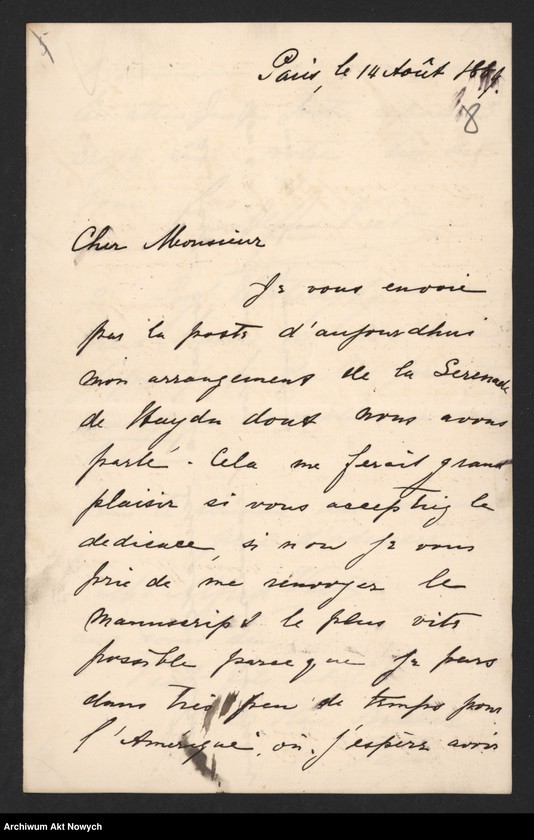 Paris, le 14 Août
8
Cher Monsieur
Je vous envoie
par la poste d'aujourdhui
mon arrangement de la Serenade
de Haydn dont nous avons
parlé. Cela me ferait grand
plaisir si vous acceptiez la
dedicace, si non je vous
prie de me renvoyer le
manuscript le plus vite
possible parceque je pars
dans très peu de temps pour
l'Amérique, où j'espère avoir
Archiwum Akt Nowych